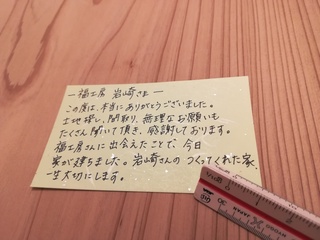 ー福工房 岩崎さまー
この度は、本当にありがとうございました。
土地探し、間取り、無理なお願いも
たくさん聞いて頂き、感謝しております。
福工房さんに出会えたことで、今日
家が建ちました。岩崎さんのつくってくれた家、
一生大切にします。